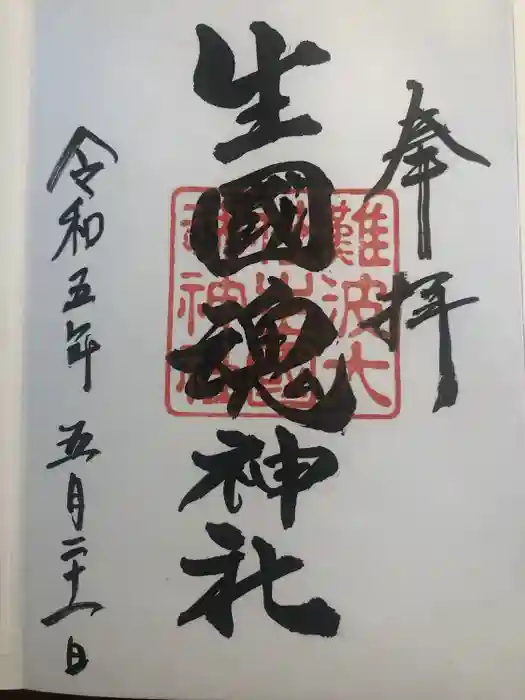 奉拝
難波大
社生國
魂神社
生國魂神社
令和五年 五月二十一日